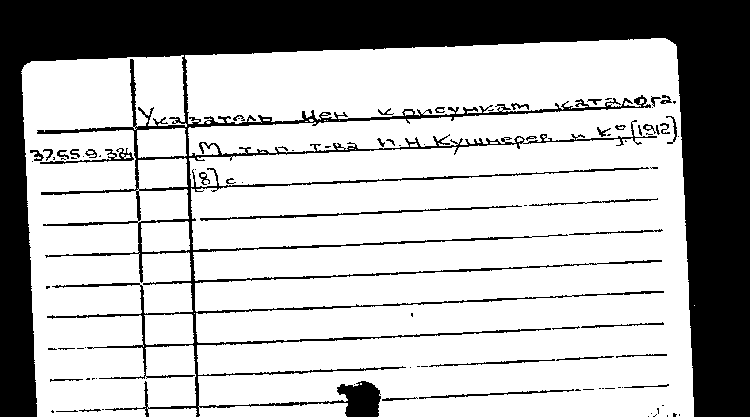 Указатель цен к рисункам каталога.
37.55.9.384 [М, тип. т-ва И.Н. Кушнерев и К°, [1912]
[8] с